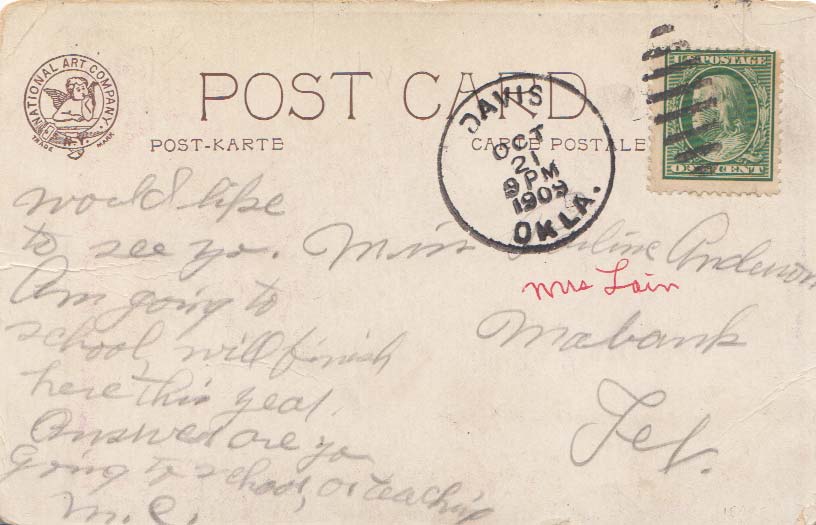 NATIONAL ART COMPANY
N.Y.
TRADE MARK
POST CARD
POST-KARTE
CARTE POSTALE
DAVIS
OCT
21
9 PM
1909
OKLA.
U.S. POSTAGE
ONE CENT
would like
to see yo.
Am going to
school, will finish
here this year,
Answer are yo
going to school, or teaching
M. C.
Miss Pauline Anderson
Mrs Lain
Mabank
Tex.